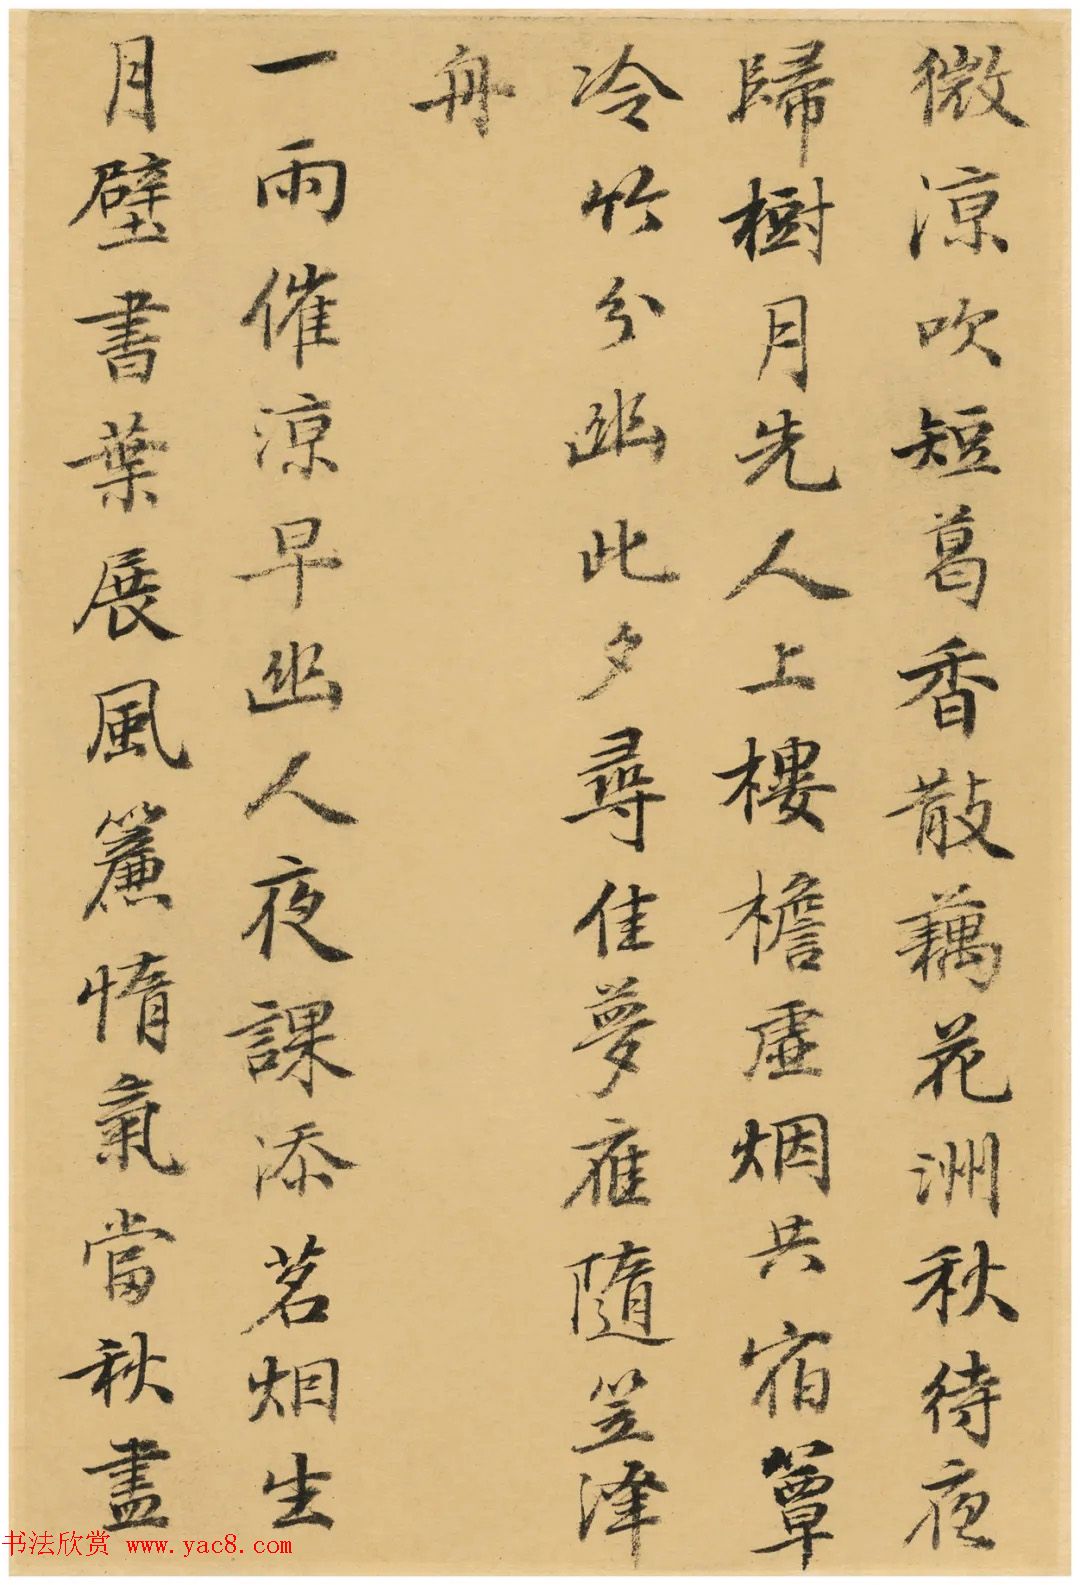 微涼吹短葛香散藕花洲秋待夜
歸樹月先人上樓檐虛烟共宿簟
冷竹分幽此夕尋佳夢雁隨笠澤
舟
一雨催涼早幽人夜課添茗烟生
月壁書葉展風簾惰氣當秋盡
书法欣赏 www.yac8.com